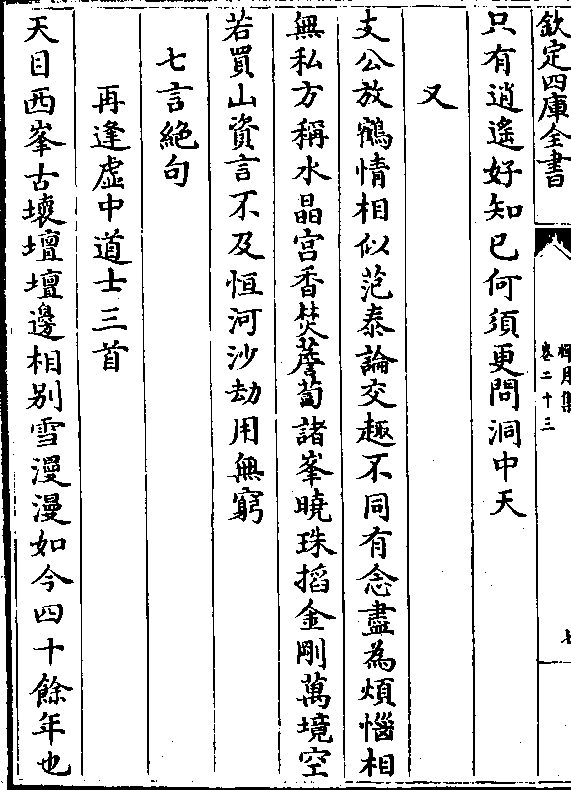 欽定四庫全書
禪月集
卷二十三
七
只有逍遙好知已何須更問洞中天
又
支公放鶴情相似范泰論交趣不同有念盡為煩惱相
無私方稱水晶宫香焚薝蔔諸峯曉珠搯金剛萬境空
若買山資言不及恒河沙劫用無窮
七言絶句
再逢虚中道士三首
天目西峯古壞壇壇邊相别雪漫漫如今四十餘年也